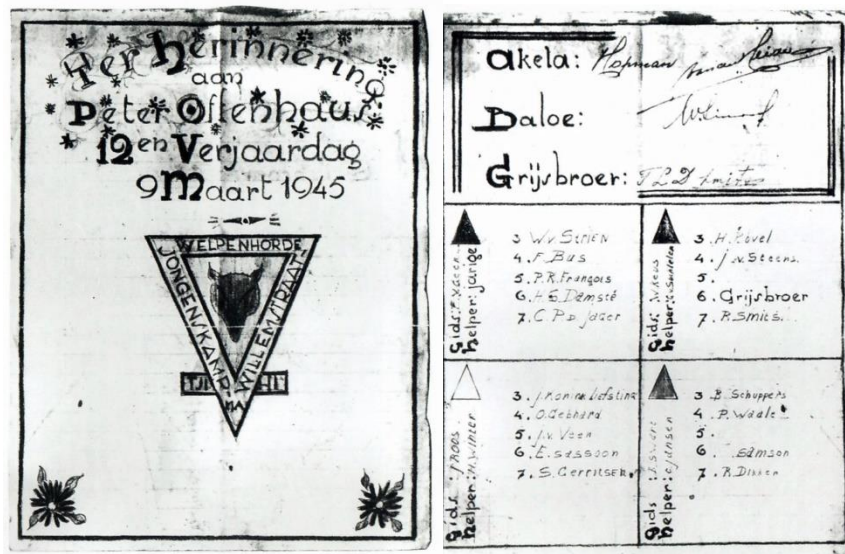 Ter herinnering
aan
Peter Oltenhaus
12en Verjaardag
9 Maart 1945
WELPENHORDE
JONGENSKAMP
WILLEMSTRAAT
TJI
Akela: Hopman
Baloe:
Grijsbroer: T L D Smits
Gids:
helper: jarige
3 W.v. Strien
4. F. Bus
5. P.R. François
6. H.S. Damsté
7. C. P. D. Jager
Gids: Roos
helper:
3. H.
4. J. v. Steens
5.
6. Grijsbroer
7. R. Smits
Gids: J Roos
helper: H. Winter
3. J. Konink Liefsting
4. O. Gebhard
5. J. v. Veen
6. E. Sassoon
7. S. Gerritsen
Gids:
helper: Jansen
3 B. Schuppers
4. P. Waale
5.
6. Samson
7. R. Dikken